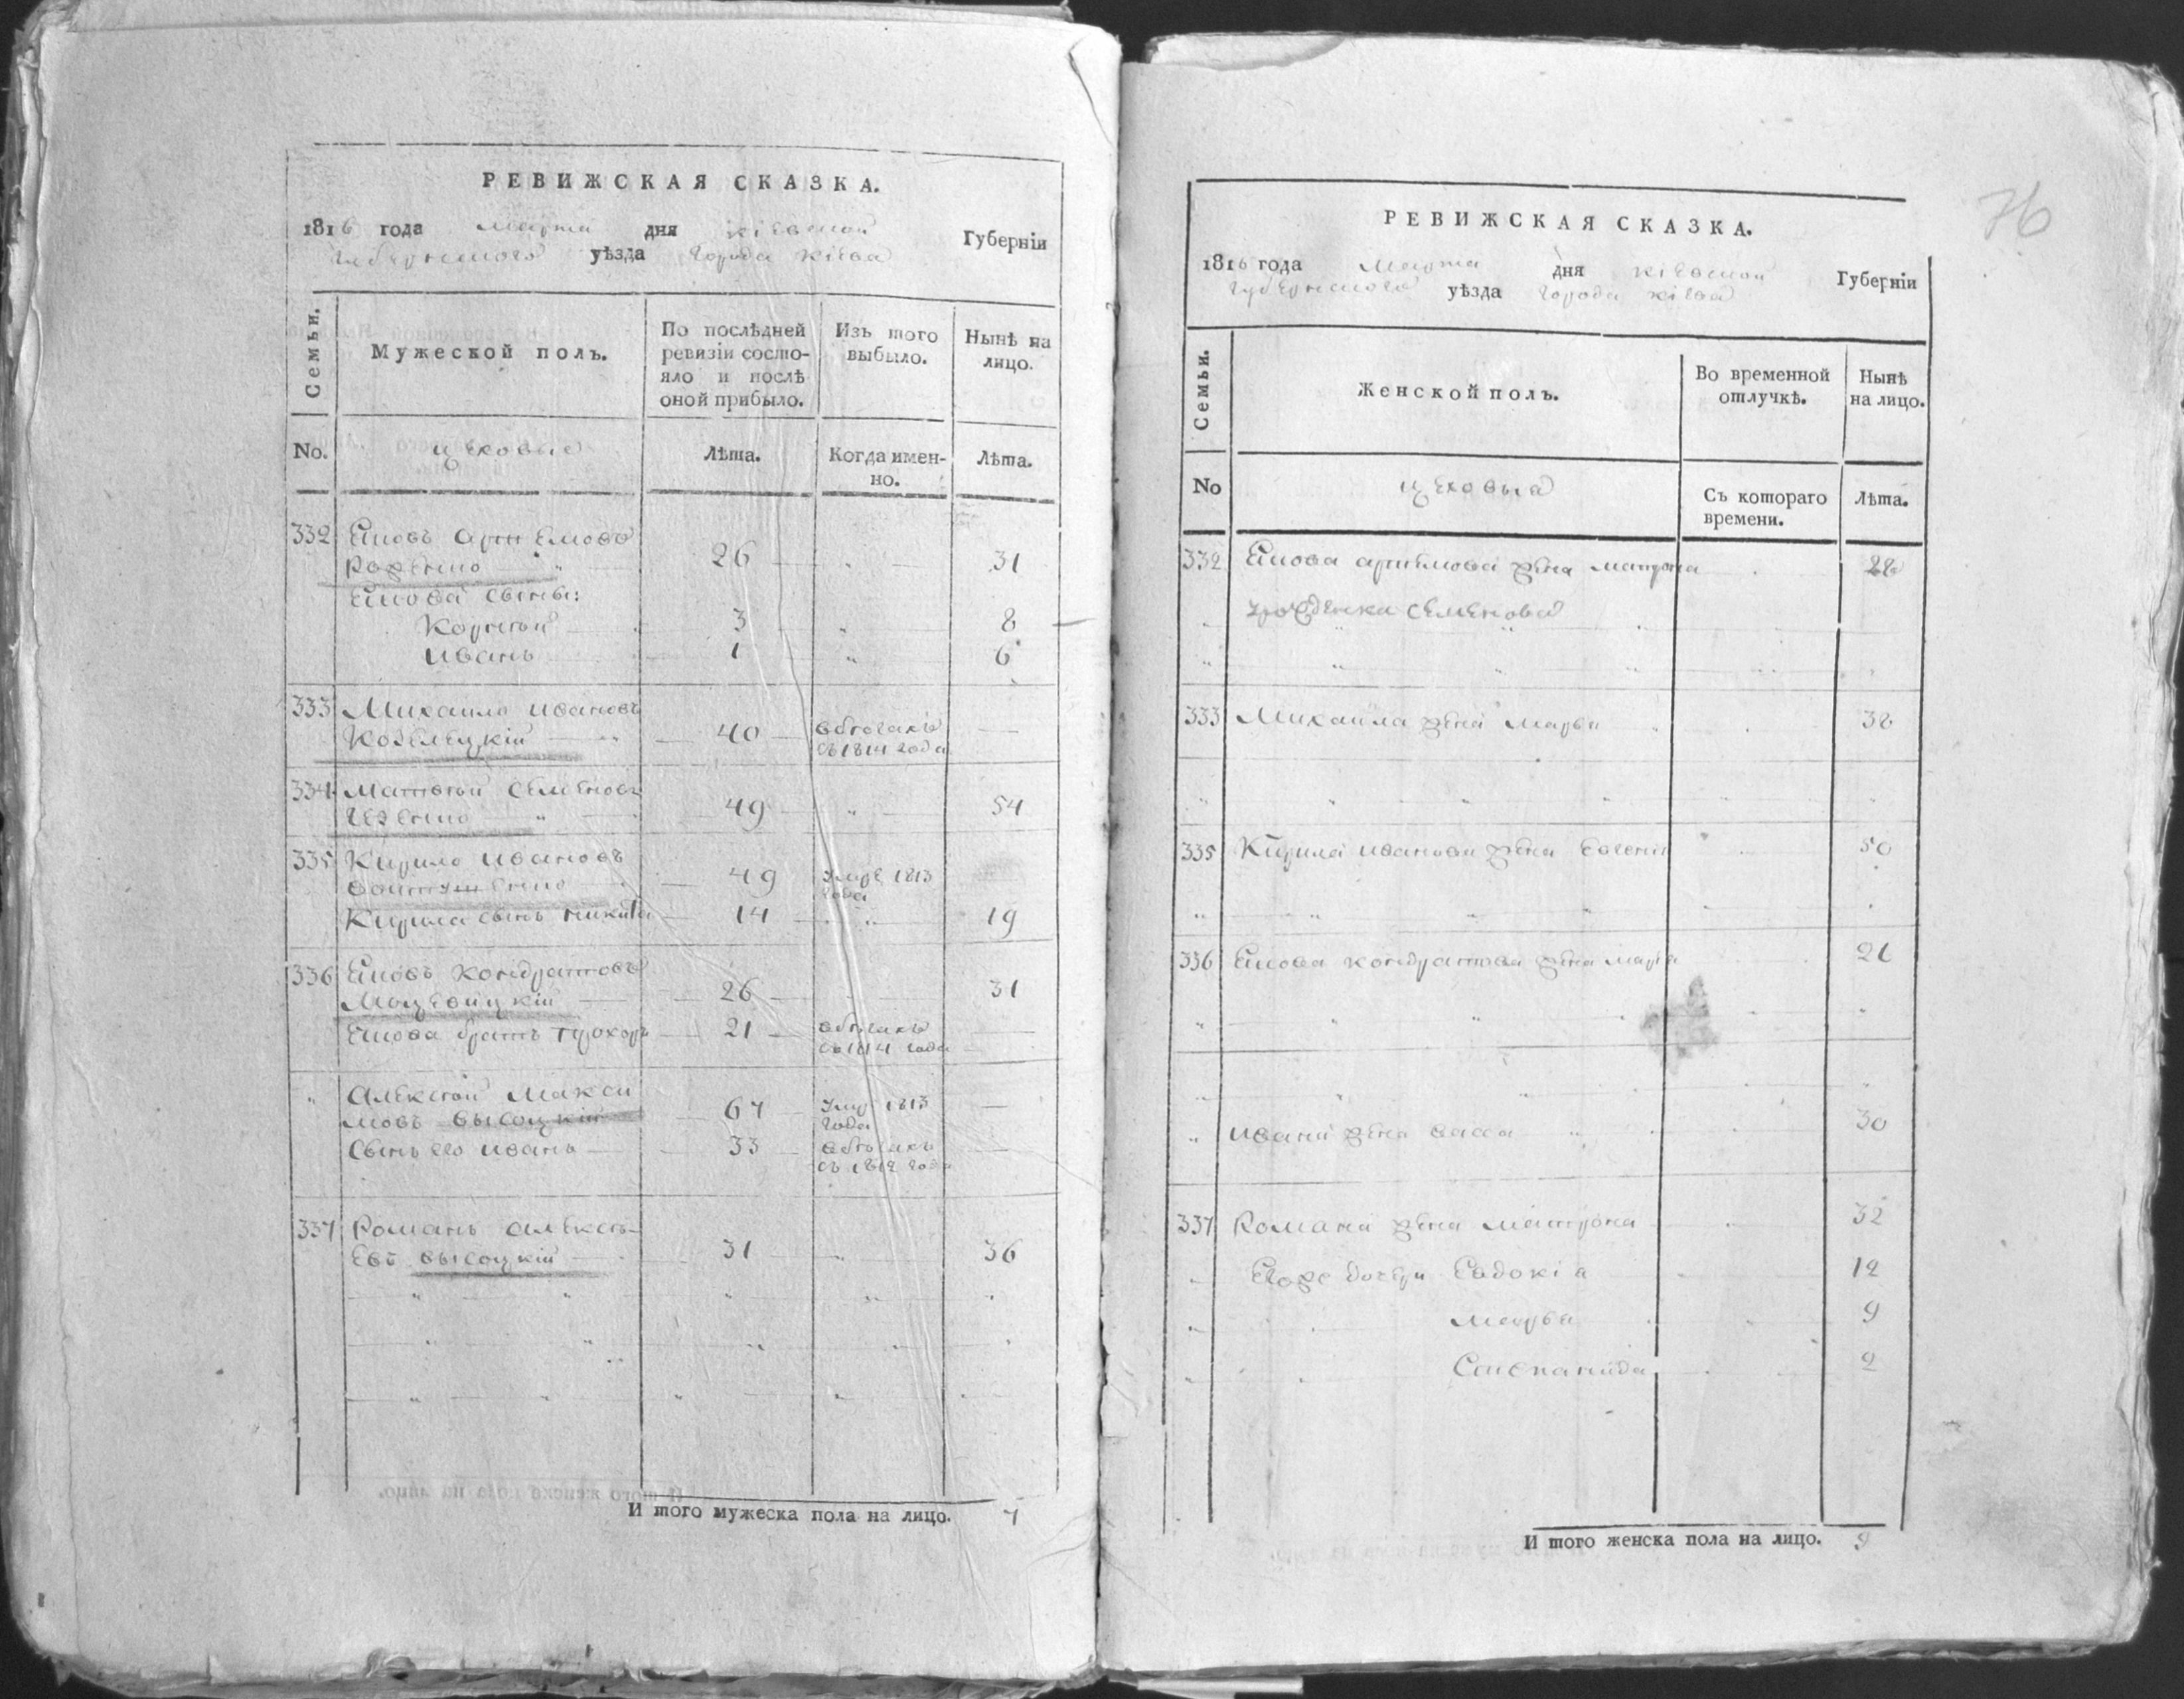 РЕВИЖСКАЯ СКАЗКА.
1816 года марта дня кіевской Губерніи
губернского уѣзда города кіева
Семьи.
Мужеской полъ.
По послѣдней ревизіи состояло и послѣ оной прибыло.
Изъ того выбыло.
Нынѣ на лицо.
No.
цеховые
Лѣта.
Когда именно.
Лѣта.
332 Яковъ Артемовъ
26 31
Якова сыны:
Корнѣй 3 8
Иванъ 1 6
333 Михаило Ивановъ
Козелецкій 40 въ бѣгахъ
съ 1814 года
334 Матвѣй Семеновъ
49 54
335 Кирило Ивановъ
49 умре 1813
года
Кирила сынъ Никита 14 19
336 Яковъ Кондратовъ
Мацевицкій 26 31
Якова братъ Прохоръ 21 въ бѣгахъ
съ 1814 года
Алексѣй Макси
мовъ Высоцкій 67 умре 1813
года
Сынъ его Иванъ 33 въ бѣгахъ
съ 1812 года
337 Романъ Алексѣ-
евъ Высоцкій 31 36
И того мужеска пола на лицо. 7
76
РЕВИЖСКАЯ СКАЗКА.
1816 года марта дня кіевской Губерніи
губернского уѣзда города кіева
Семьи.
Женской полъ.
Во временной отлучкѣ.
Нынѣ на лицо.
No
цеховыя
Съ котораго времени.
Лѣта.
332 Якова Артемова жена Матрона 28
Семенова
333 Михаила жена Марья 38
335 Кирила Иванова жена Евгенія 50
336 Якова Кондратова жена Марія 21
Ивана жена Васса 30
337 Романа жена Матрона 32
Его же дочери Евдокіа 12
Марья 9
Степанида 2
И того женска пола на лицо. 9